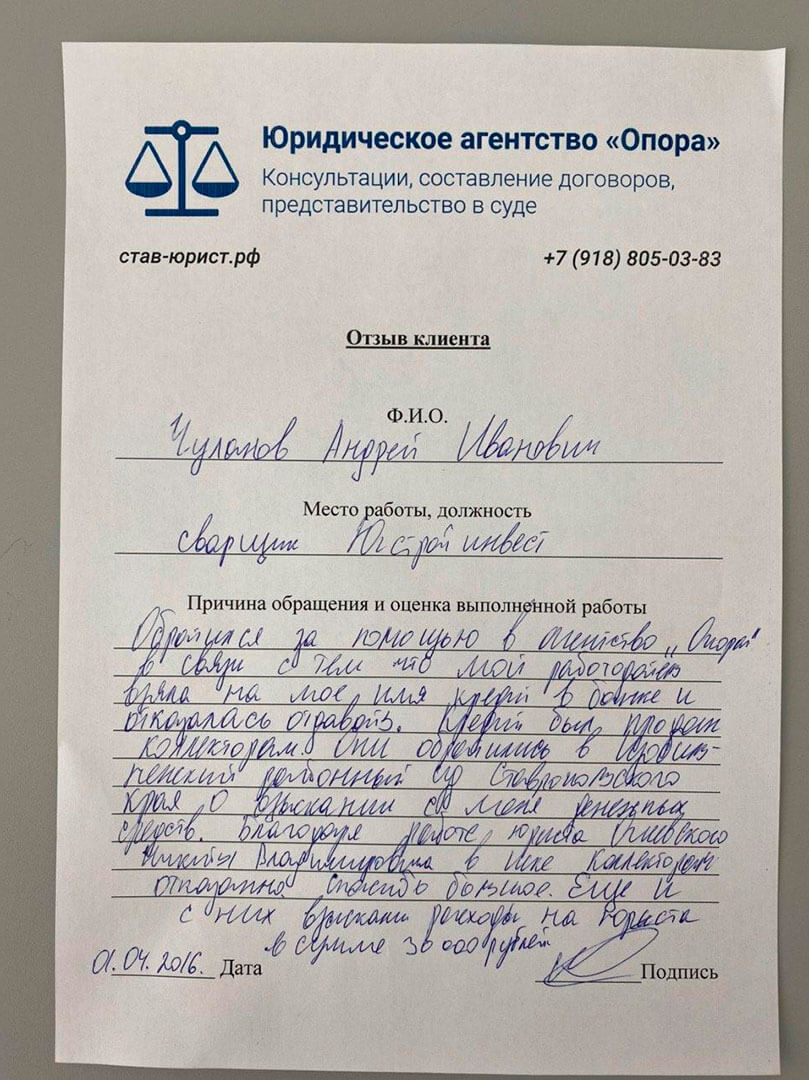 Юридическое агентство «Опора»
Консультации, составление договоров,
представительство в суде
став-юрист.рф
+7 (918) 805-03-83
Отзыв клиента
Ф.И.О.
Андрей Иванович
Место работы, должность
сварщик Югстройинвест
Причина обращения и оценка выполненной работы
Обратился за помощью в агентство „Опора"
в связи с тем что мой работодатель
взяла на мое имя кредит в банке и
отказалась отдавать. Кредит был продан
коллекторам. Они обратились в Изобиль-
ненский районный суд Ставропольского
края о взыскании с меня денежных
средств. Благодаря работе юриста
Никиты Владимировича в иске коллекторам
отказано. Спасибо большое. Еще и
с них взыскали расходы на юриста
в сумме 30 000 рублей
01.04.2016. Дата
Подпись